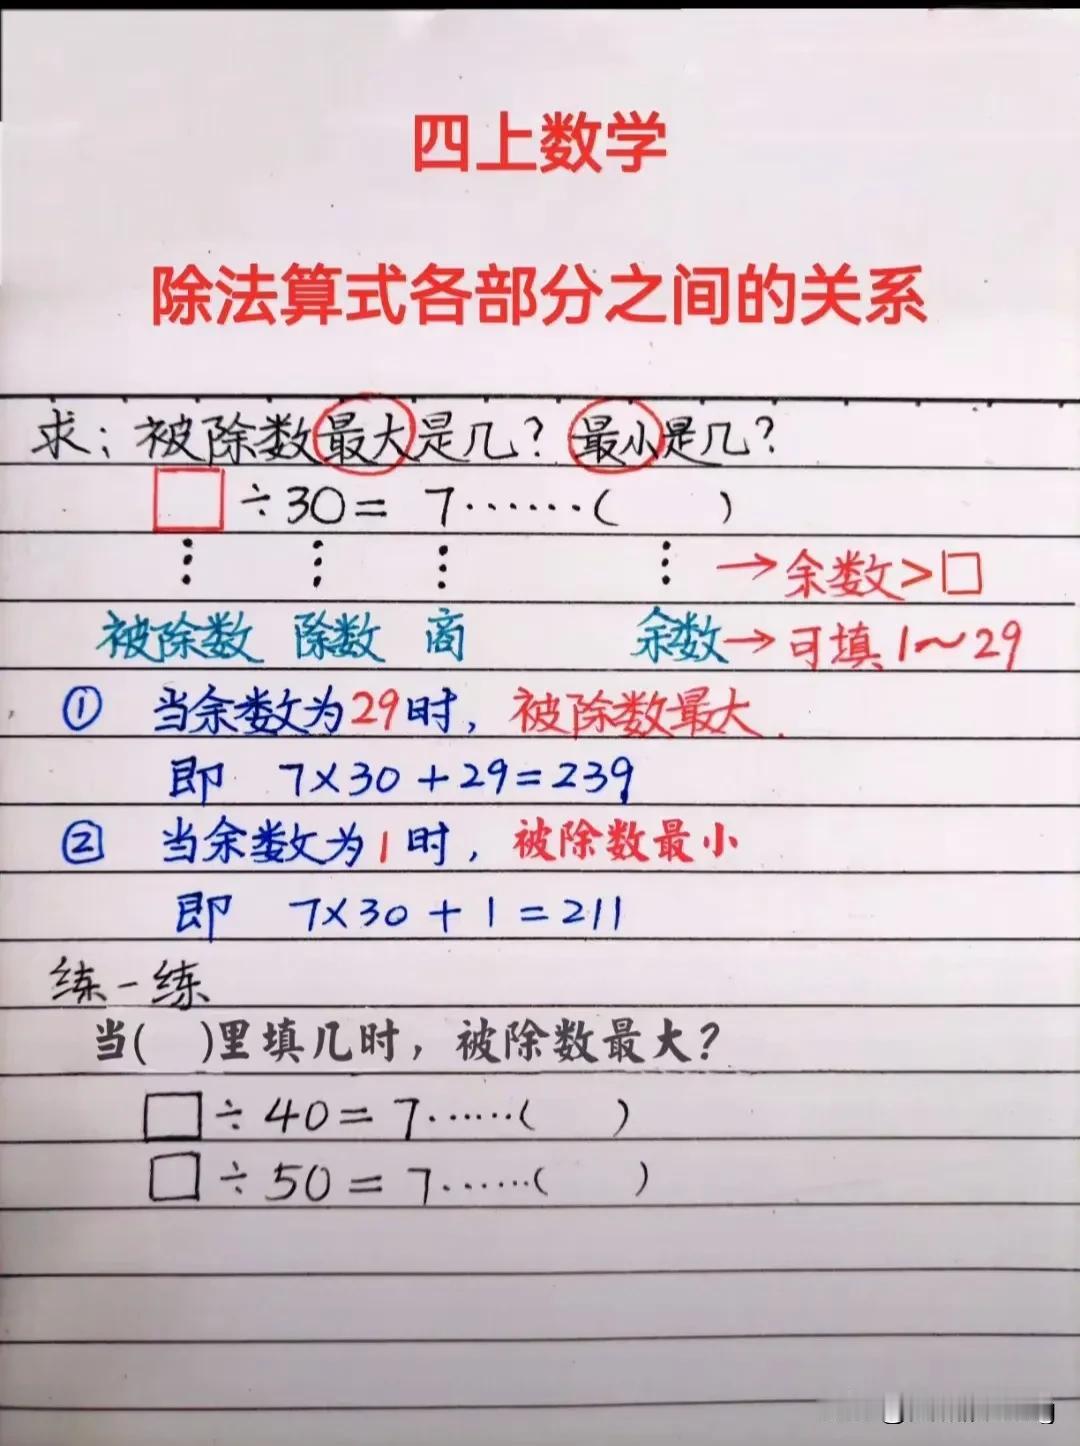 四上数学
除法算式各部分之间的关系
求：被除数最大是几？最小是几？
□÷30=7……( )
→余数>□
被除数 除数 商 余数→可填1~29
① 当余数为29时，被除数最大.
即 7×30+29=239
② 当余数为1时，被除数最小
即 7×30+1=211
练一练
当( )里填几时，被除数最大？
□÷40=7……( )
□÷50=7……( )